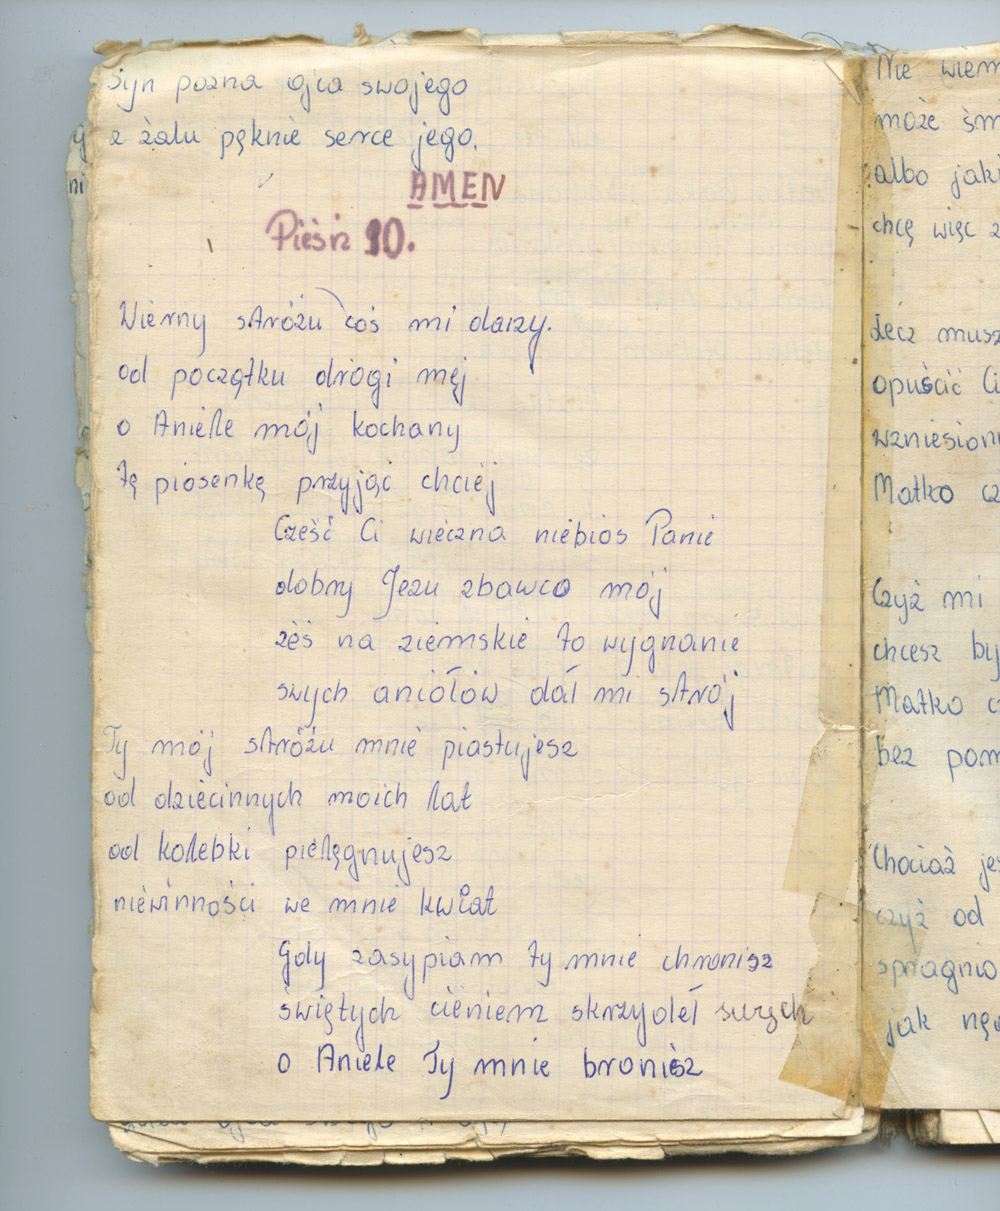 Syn pozna ojca swojego
z żalu pęknie serce jego.
AMEN
Pieśń 10.
Wierny stróżu coś mi dany.
od początku drogi mej
o Aniele mój kochany
tę piosenkę przyjąć chciej
Cześć Ci wieczna niebios Panie
dobry Jezu zbawco mój
żeś na ziemskie to wygnanie
swych aniołów dał mi strój
Ty mój stróżu mnie piastujesz
od dziecinnych moich lat
od kolebki pielęgnujesz
niewinności we mnie kwiat
Gdy zasypiam ty mnie chronisz
świętych cieniem skrzydeł swych
o Aniele Ty mnie bronisz
Nie wiem
może
albo
chcę więc
Lecz
opuścić
Matko
Czyż mi
chcesz
Matko
bez
Chociaż
czyż od
jak